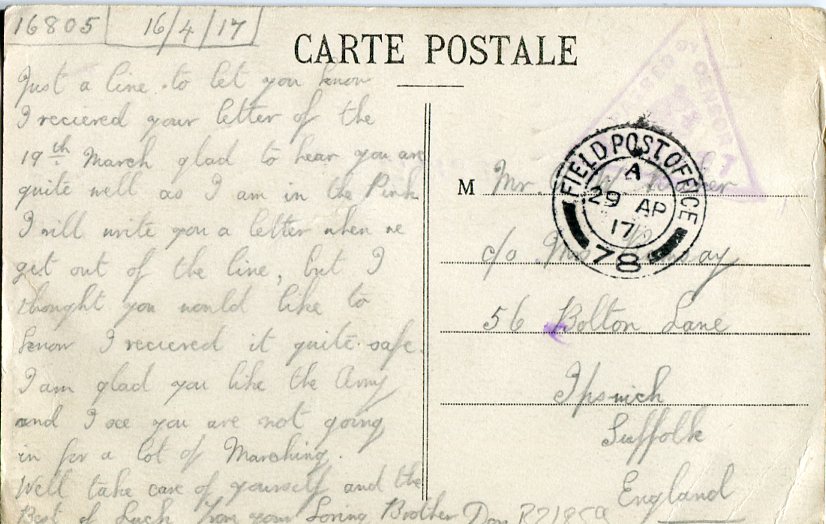 16805 16/4/17
CARTE POSTALE
Just a line to let you know
I recieved your letter of the
19th March glad to hear you are
quite well as I am in the Pink
I will write you a letter when we
get out of the line, but I
thought you would like to
know I recieved it quite safe.
I am glad you like the Army
and I see you are not going
in for a lot of Marching.
Well take care of yourself and the
Best of Luck from your Loving Brother Don
PASSED BY CENSOR
FIELD POST OFFICE
A
29 AP
17
78
M Mr.
c/o Mrs
56 Bolton Lane
Ipswich
Suffolk
England